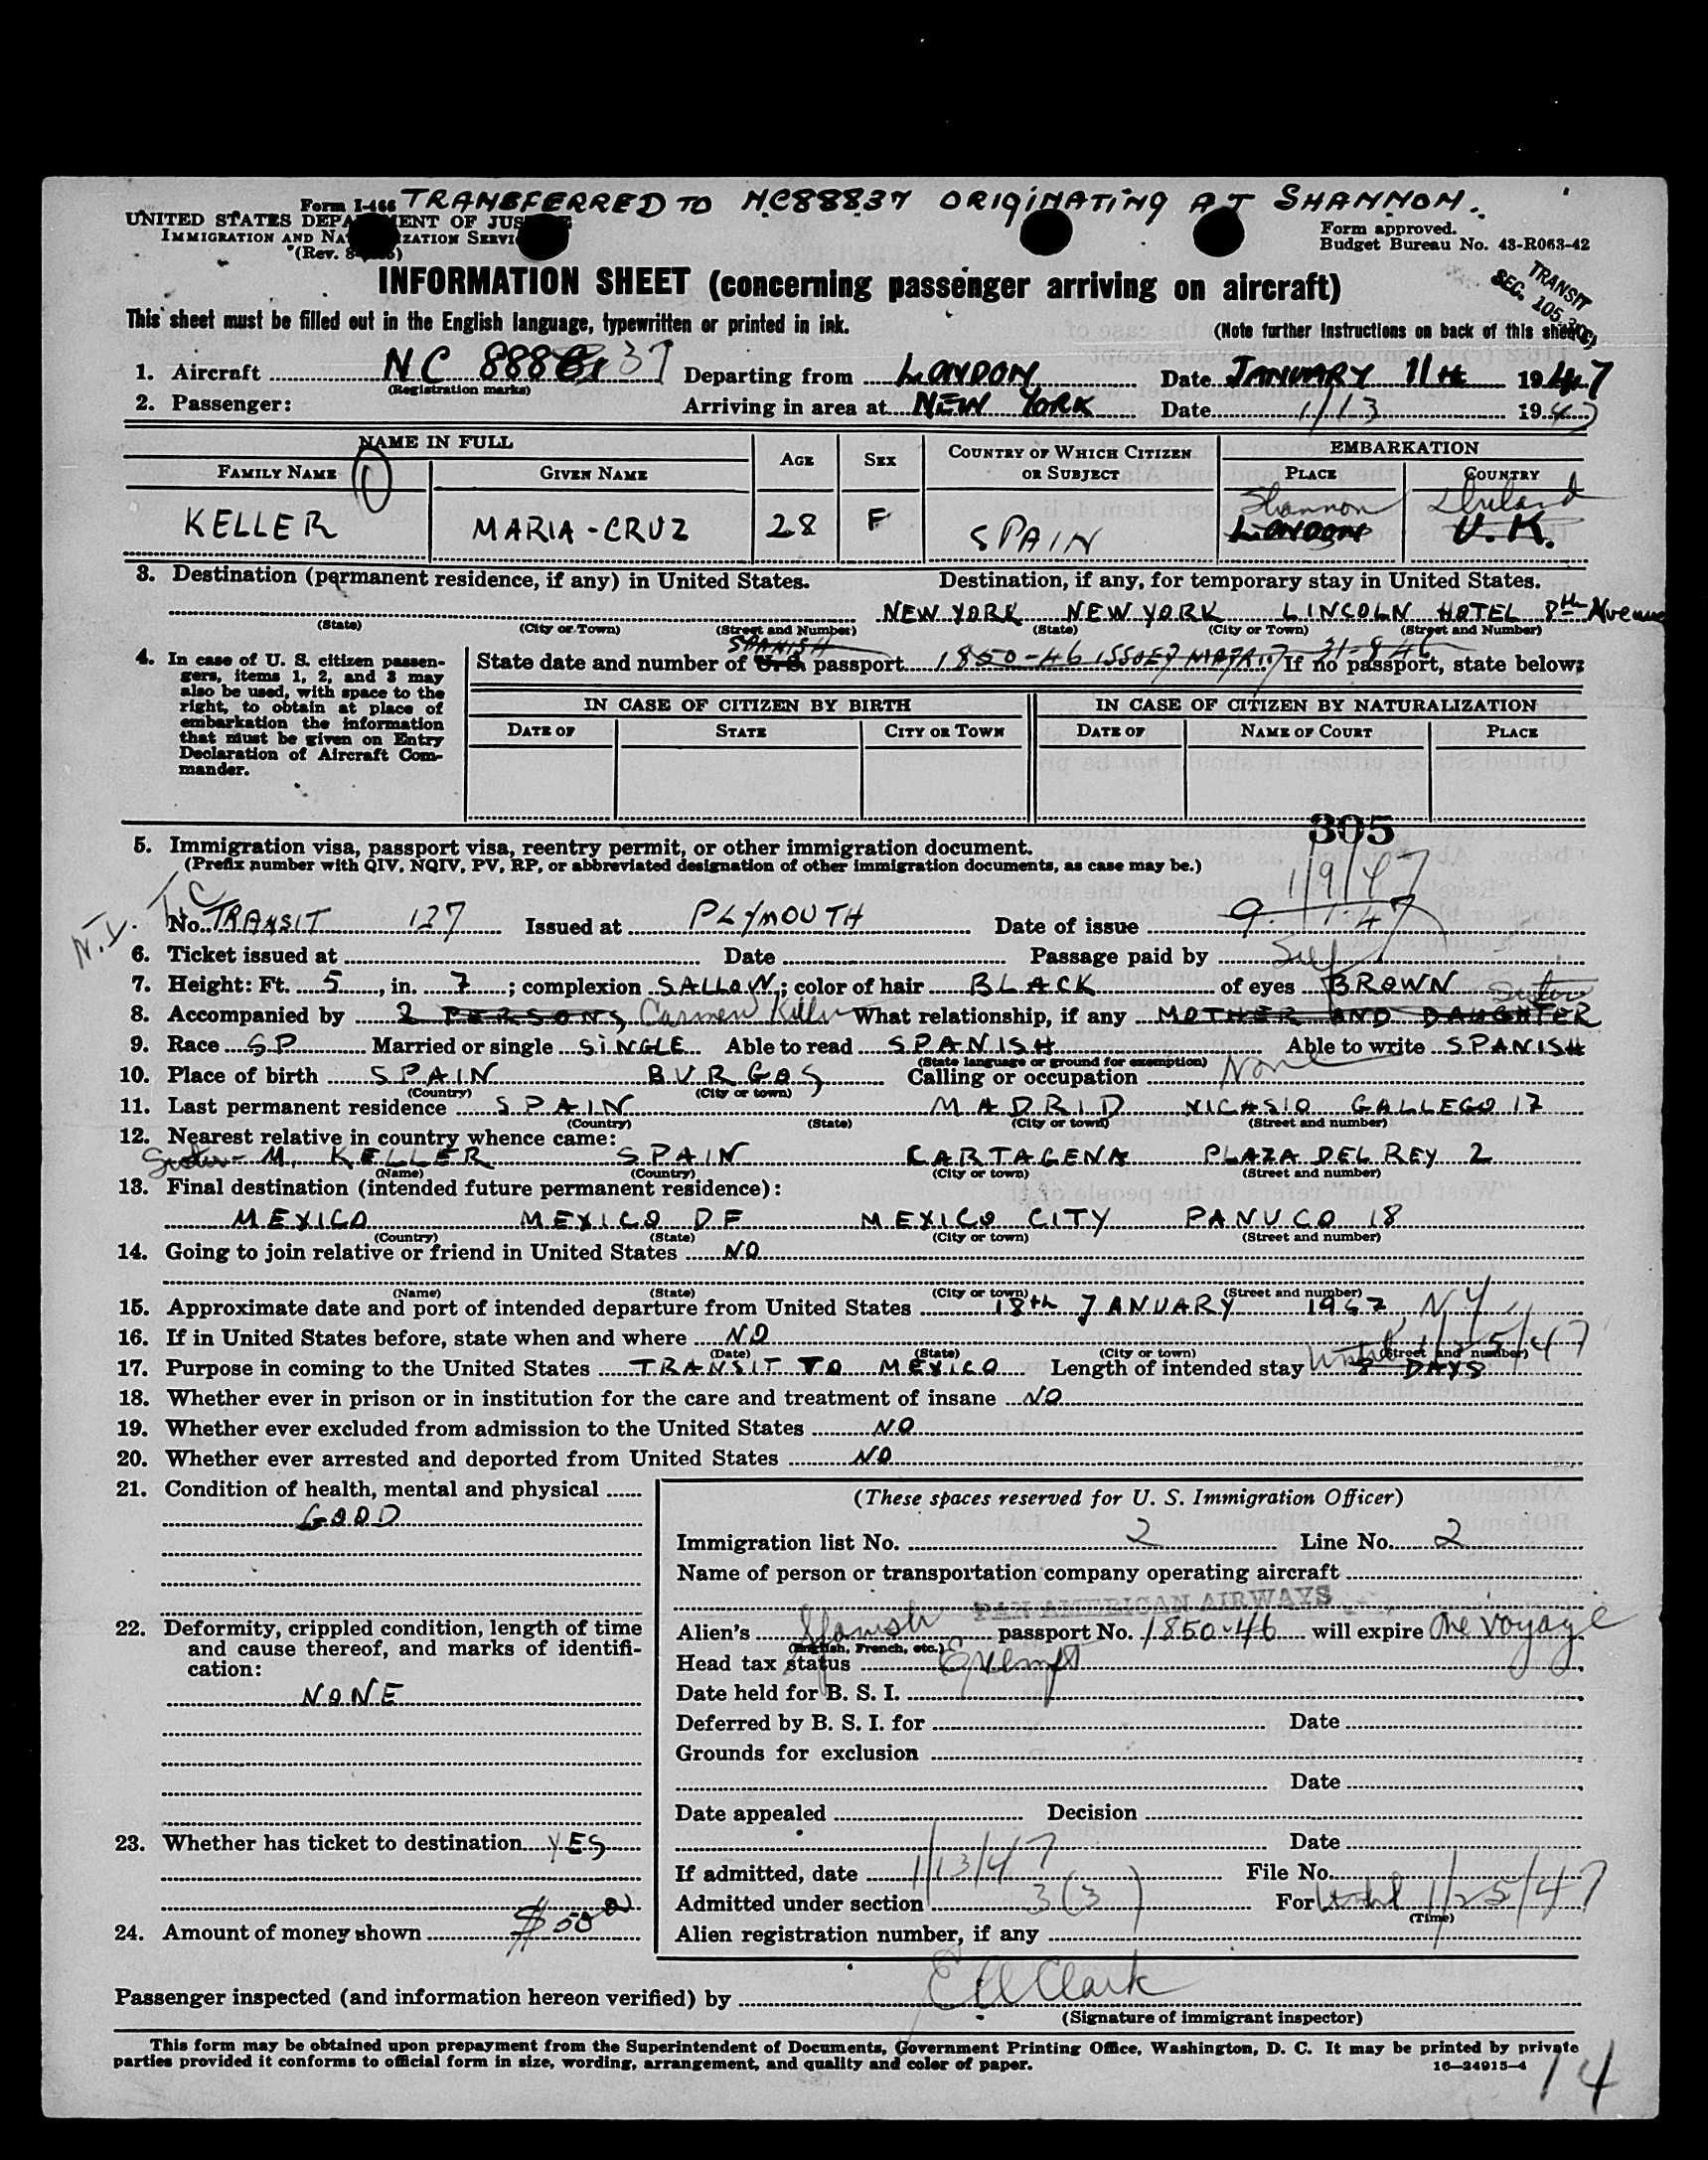 Form I-466 TRANSFERRED TO NC88837 ORIGINATING AT SHANNON.
UNITED STATES DEPA ENT OF JUS
IMMIGRATION AND NA IZATION SERVI
(Rev. 8- )
Form approved.
Budget Bureau No. 43-R063-42
INFORMATION SHEET (concerning passenger arriving on aircraft)
TRANSIT
SEC. 105.
This sheet must be filled out in the English language, typewritten or printed in ink.
(Note further instructions on back of this sheet)
1. Aircraft NC 888 37 Departing from LONDON Date JANUARY 11th 1947
(Registration marks)
2. Passenger: Arriving in area at NEW YORK Date 1/13 1947
NAME IN FULL AGE SEX COUNTRY OF WHICH CITIZEN OR SUBJECT EMBARKATION
FAMILY NAME GIVEN NAME PLACE COUNTRY
Shannon Ireland
KELLER MARIA-CRUZ 28 F SPAIN LONDON U.K.
3. Destination (permanent residence, if any) in United States. Destination, if any, for temporary stay in United States.
NEW YORK NEW YORK LINCOLN HOTEL 8th Avenue
(State) (City or Town) (Street and Number) (State) (City or Town) (Street and Number)
4. In case of U. S. citizen passengers, items 1, 2, and 3 may also be used, with space to the right, to obtain at place of embarkation the information that must be given on Entry Declaration of Aircraft Commander.
SPANISH 31-8-46
State date and number of U.S. passport 1850-46 ISSUED MADRID If no passport, state below:
IN CASE OF CITIZEN BY BIRTH IN CASE OF CITIZEN BY NATURALIZATION
DATE OF STATE CITY OR TOWN DATE OF NAME OF COURT PLACE
305
5. Immigration visa, passport visa, reentry permit, or other immigration document.
(Prefix number with QIV, NQIV, PV, RP, or abbreviated designation of other immigration documents, as case may be.)
N.I. T.C 1/9/47
No. TRANSIT 127 Issued at PLYMOUTH Date of issue 9.1.47
6. Ticket issued at Date Passage paid by Self
7. Height: Ft. 5, in. 7; complexion SALLOW; color of hair BLACK of eyes BROWN
Sister
8. Accompanied by 2 PERSONS Carmen Keller What relationship, if any MOTHER AND DAUGHTER
9. Race SP Married or single SINGLE Able to read SPANISH Able to write SPANISH
(State language or ground for exemption)
10. Place of birth SPAIN BURGOS Calling or occupation None
(Country) (City or town)
11. Last permanent residence SPAIN MADRID NICASIO GALLEGO 17
(Country) (State) (City or town) (Street and number)
12. Nearest relative in country whence came:
Sister - M. KELLER SPAIN CARTAGENA PLAZA DEL REY 2
(Name) (Country) (City or town) (Street and number)
13. Final destination (intended future permanent residence):
MEXICO MEXICO DF MEXICO CITY PANUCO 18
(Country) (State) (City or town) (Street and number)
14. Going to join relative or friend in United States NO
(Name) (State) (City or town) (Street and number)
15. Approximate date and port of intended departure from United States 18th JANUARY 1947, N.Y.
16. If in United States before, state when and where NO
(Date) (State) (City or town) (Street and number)
17. Purpose in coming to the United States TRANSIT TO MEXICO Length of intended stay 8 DAYS until 1/25/47
18. Whether ever in prison or in institution for the care and treatment of insane NO
19. Whether ever excluded from admission to the United States NO
20. Whether ever arrested and deported from United States NO
21. Condition of health, mental and physical
GOOD
22. Deformity, crippled condition, length of time and cause thereof, and marks of identification:
NONE
23. Whether has ticket to destination YES
24. Amount of money shown $5000
(These spaces reserved for U. S. Immigration Officer)
Immigration list No. 2 Line No. 2
Name of person or transportation company operating aircraft
PAN AMERICAN AIRWAYS
Alien's Spanish passport No. 1850-46 will expire One voyage
(English, French, etc.)
Head tax status Exempt
Date held for B. S. I.
Deferred by B. S. I. for Date
Grounds for exclusion
Date
Date appealed Decision
Date
If admitted, date 1/13/47 File No.
Admitted under section 3(3) For until 1/25/47
(Time)
Alien registration number, if any
Passenger inspected (and information hereon verified) by Clark
(Signature of immigrant inspector)
This form may be obtained upon prepayment from the Superintendent of Documents, Government Printing Office, Washington, D. C. It may be printed by private
parties provided it conforms to official form in size, wording, arrangement, and quality and color of paper.
16-24915-4
14